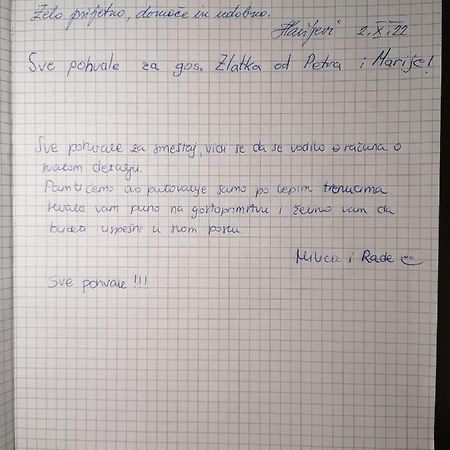 Zelo prijetno, domače in udobno.
Havijevi 2.X.22
Sve pohvale za gos. Zlatka od Petra i Marije!
Sve pohvale za smeštaj, vidi se da se vodilo računa o
svakom detalju.
Pamtićemo ovo putovanje samo po lepim trenucima
Hvala vam puno na gostoprimstvu i želimo vam da
budete uspešni u svom poslu
Milica i Rade
Sve pohvale !!!